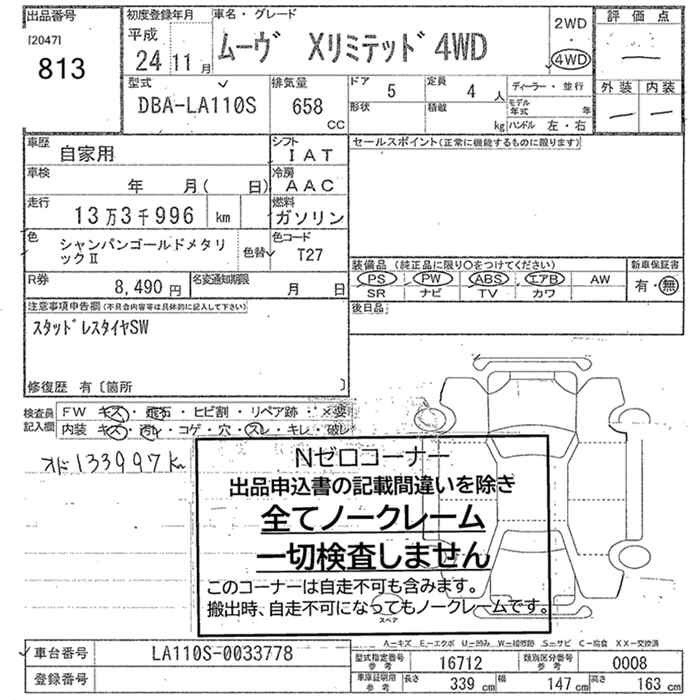 出品番号
[2047]
813
初度登録年月
平成
24 11 月
車名・グレード
ムーヴ Xリミテッド 4WD
2WD
・
4WD
評価点
外装 内装
型式
DBA-LA110S
排気量
658
CC
ドア 5
形状
定員 4 人
積載 kg
ディーラー・並行
モデル年式 年
ハンドル 左・右
車歴 自家用
シフト IAT
車検 年 月( 日)
冷房 AAC
走行 13万3千996 km
燃料 ガソリン
色 シャンパンゴールドメタリックⅡ
色替
色コード T27
R券 8,490 円
名変通知期限 月 日
セールスポイント(正常に機能するものに限ります)
装備品 (純正品に限り○をつけてください)
PS PW ABS エアB AW
SR ナビ TV カワ
新車保証書
有・無
後日品
注意事項申告欄(不具合内容等は具体的に記入して下さい)
スタッドレスタイヤSW
修復歴 有〔箇所 〕
検査員記入欄
FW キズ・飛石・ヒビ割・リペア跡・×要
内装 キズ・汚レ・コゲ・穴・スレ・キレ・破レ
メーター 133997Km
Nゼロコーナー
出品申込書の記載間違いを除き
全てノークレーム
一切検査しません
このコーナーは自走不可も含みます。
搬出時、自走不可になってもノークレームです。
スペア
A-キズ E-エクボ U-凹み W-補修跡 S-サビ C-腐食 XX-交換済
車台番号 LA110S-0033778
登録番号
型式指定番号参考 16712
類別区分番号参考 0008
車庫証明用参考
長さ 339 cm
幅 147 cm
高さ 163 cm